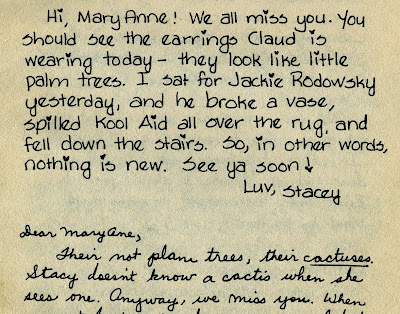 Hi, Mary Anne! We all miss you. You
should see the earrings Claud is
wearing today - they look like little
palm trees. I sat for Jackie Rodowsky
yesterday, and he broke a vase,
spilled Kool Aid all over the rug, and
fell down the stairs. So, in other words,
nothing is new. See ya soon!
Luv, Stacey
Dear Mary Ane,
Their not plam trees, their cactuses.
Stacy doesn't know a cactis when she
sees one. Anyway, we miss you. When